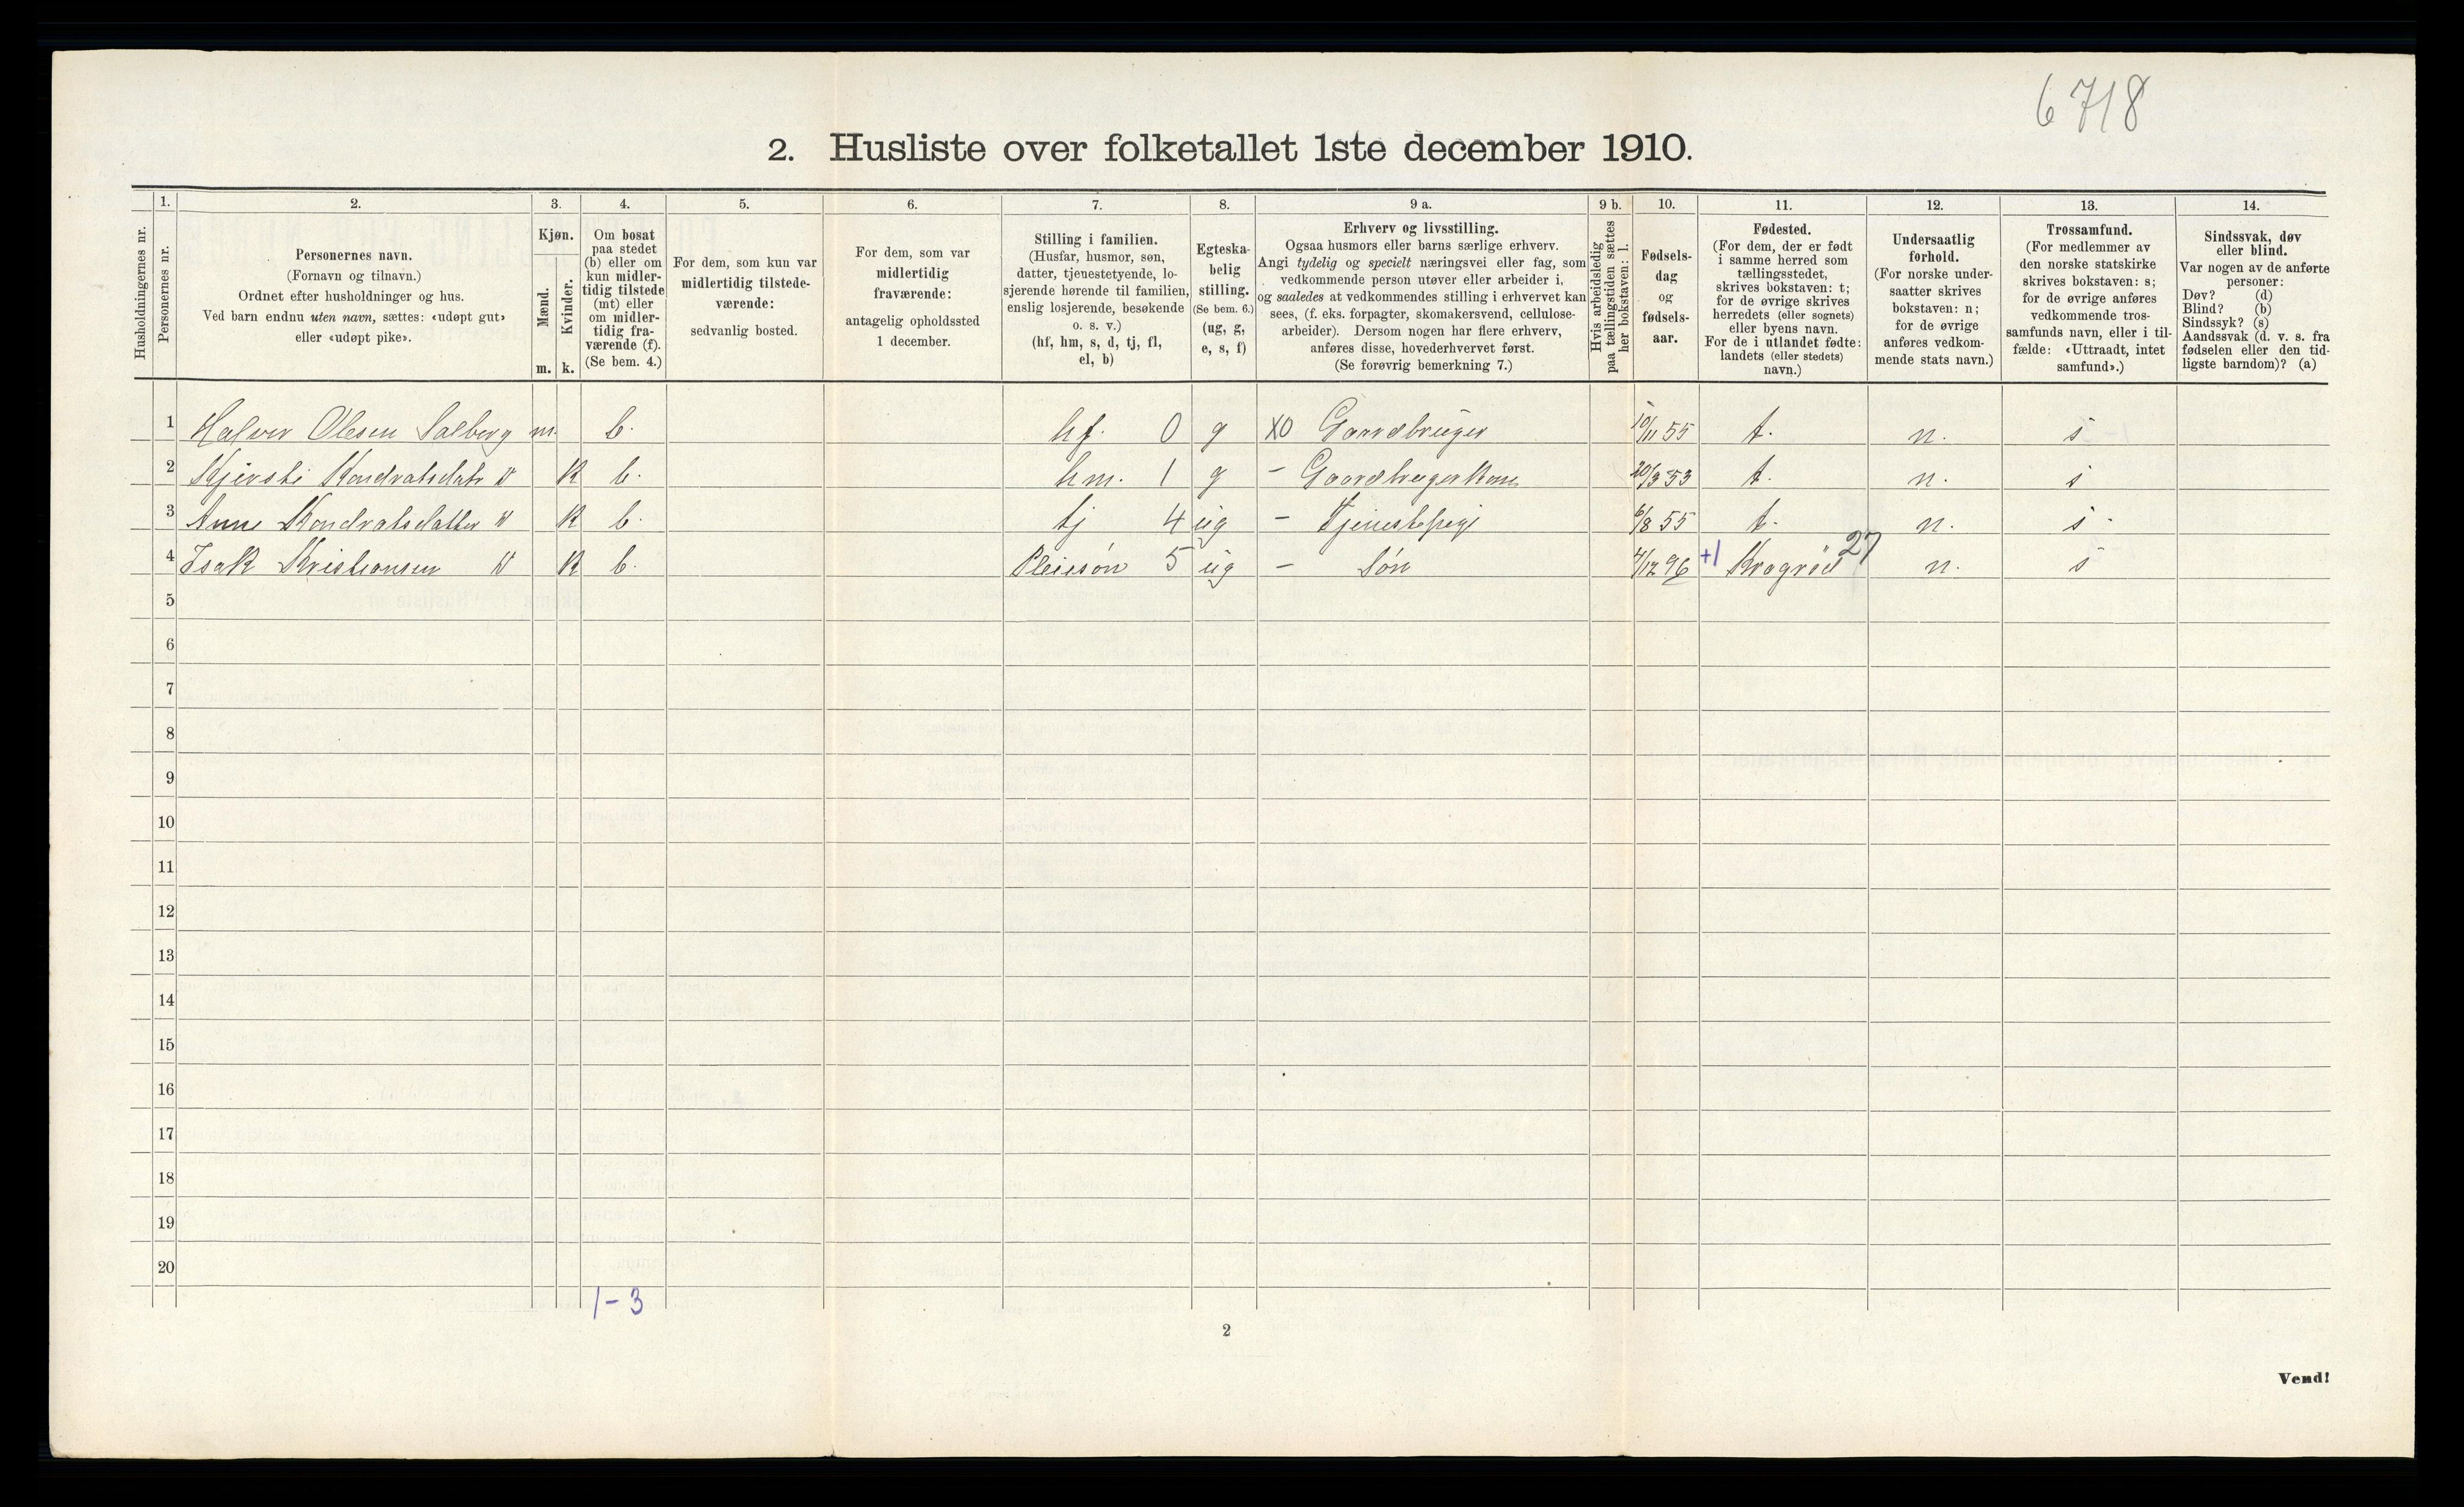 6718
2. Husliste over folketallet 1ste december 1910.
Husholdningernes nr.
1.
Personernes nr.
2.
Personernes navn.
(Fornavn og tilnavn.)
Ordnet efter husholdninger og hus.
Ved barn endnu uten navn, sættes: «udøpt gut»
eller «udøpt pike».
3.
Kjøn.
Mænd.
Kvinder.
m. k.
4.
Om bosat
paa stedet
(b) eller om
kun midler-
tidig tilstede
(mt) eller
om midler-
tidig fra-
værende (f).
(Se bem. 4.)
5.
For dem, som kun var
midlertidig tilstede-
værende:
sedvanlig bosted.
6.
For dem, som var
midlertidig
fraværende:
antagelig opholdssted
1 december.
7.
Stilling i familien.
(Husfar, husmor, søn,
datter, tjenestetyende, lo-
sjerende hørende til familien,
enslig losjerende, besøkende
o. s. v.)
(hf, hm, s, d, tj, fl,
el, b)
8.
Egteska-
belig
stilling.
(Se bem. 6.)
(ug, g,
e, s, f)
9 a.
Erhverv og livsstilling.
Ogsaa husmors eller barns særlige erhverv.
Angi tydelig og specielt næringsvei eller fag, som
vedkommende person utøver eller arbeider i,
og saaledes at vedkommendes stilling i erhvervet kan
sees, (f. eks. forpagter, skomakersvend, cellulose-
arbeider). Dersom nogen har flere erhverv,
anføres disse, hovederhvervet først.
(Se forøvrig bemerkning 7.)
9 b.
Hvis arbeidsledig
paa tællingstiden sættes
her bokstaven: l.
10.
Fødsels-
dag
og
fødsels-
aar.
11.
Fødested.
(For dem, der er født
i samme herred som
tællingsstedet,
skrives bokstaven: t;
for de øvrige skrives
herredets (eller sognets)
eller byens navn.
For de i utlandet fødte:
landets (eller stedets)
navn.)
12.
Undersaatlig
forhold.
(For norske under-
saatter skrives
bokstaven: n;
for de øvrige
anføres vedkom-
mende stats navn.)
13.
Trossamfund.
(For medlemmer av
den norske statskirke
skrives bokstaven: s;
for de øvrige anføres
vedkommende tros-
samfunds navn, eller i til-
fælde: «Uttraadt, intet
samfund».)
14.
Sindssvak, døv
eller blind.
Var nogen av de anførte
personer:
Døv? (d)
Blind? (b)
Sindssyk? (s)
Aandssvak (d. v. s. fra
fødselen eller den tid-
ligste barndom)? (a)
1 Halvor Olesen Salberg m. b. hf. 0 g X0 Gaardbruger 10/11 55 t. n. s
2 Kjersti Kondratsdatr K b. hm. 1 g - Gaardbrugerkone 20/3 53 t. n. s
3 Anne Kondratsdatter K b. tj 4 ug - Tjenestepige 6/8 55 t. n. s
4 Isak Kristiansen K b. Pleiesøn 5 ug - Søn 4/12 96 +1 Kragrøe 27 n. s
5
6
7
8
9
10
11
12
13
14
15
16
17
18
19
20
1-3
2
Vend!